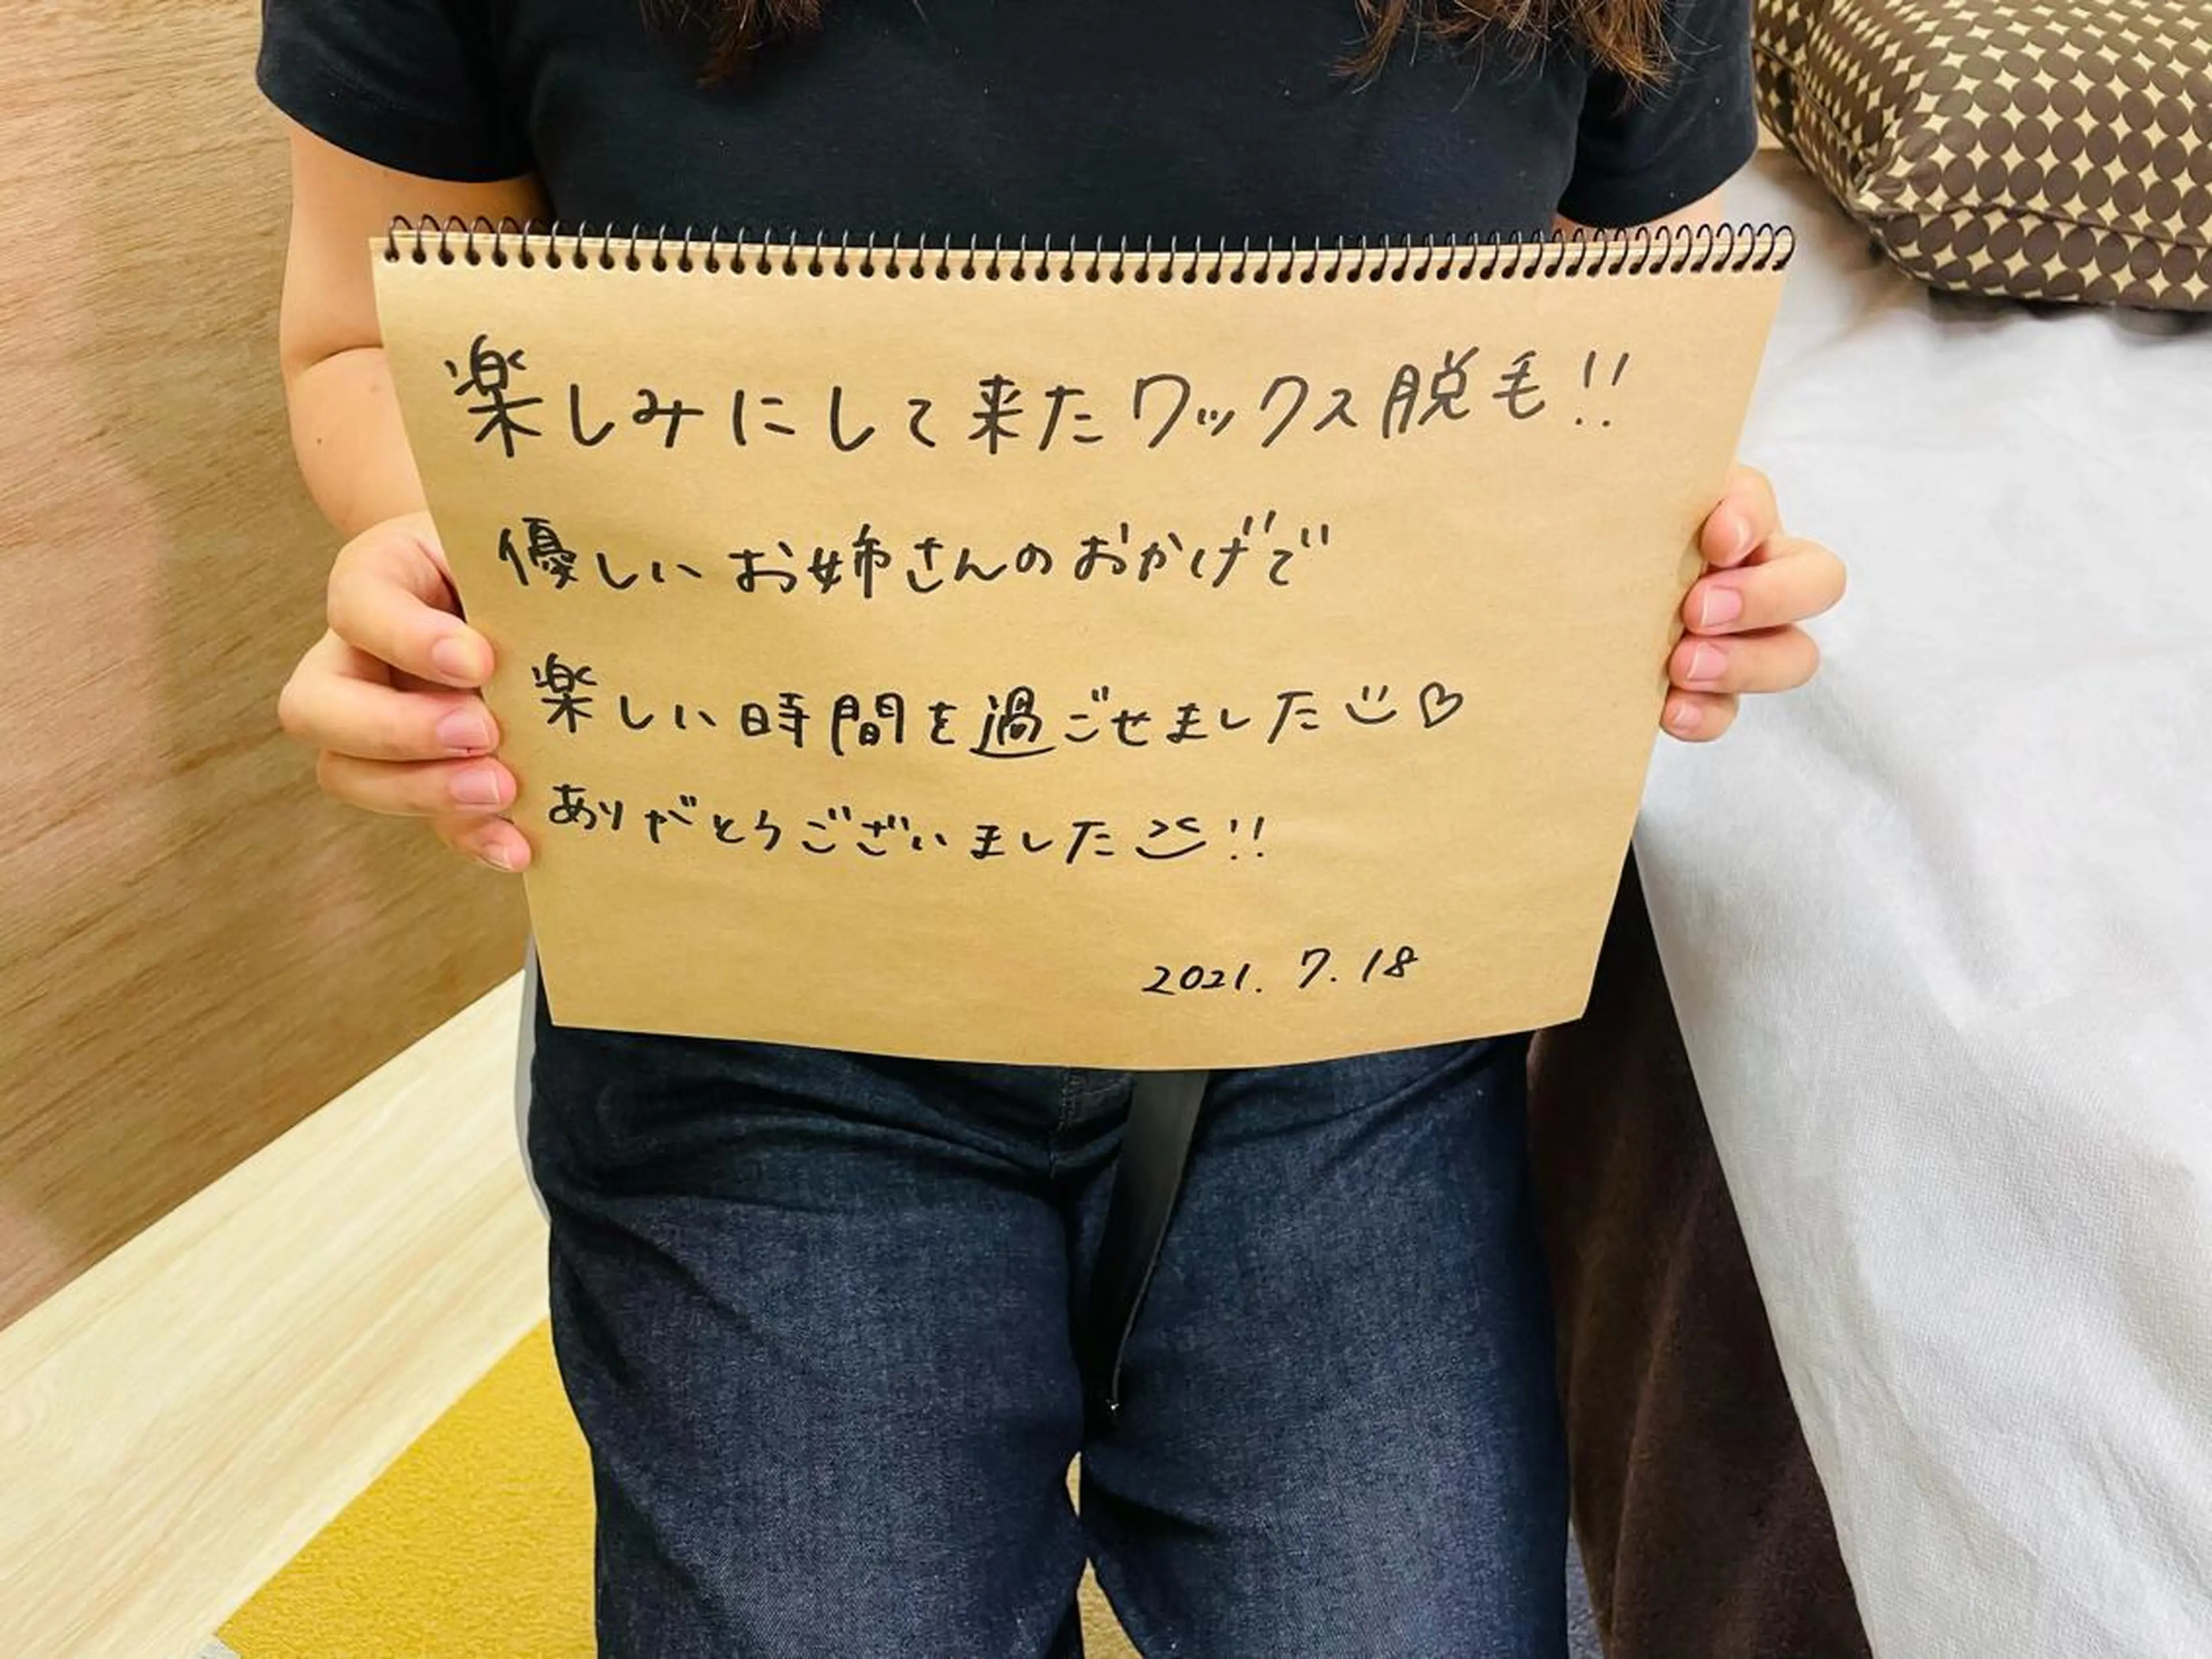 楽しみにして来たワックス脱毛!!
優しいお姉さんのおかげで
楽しい時間を過ごせました
ありがとうございました!!
2021. 7. 18